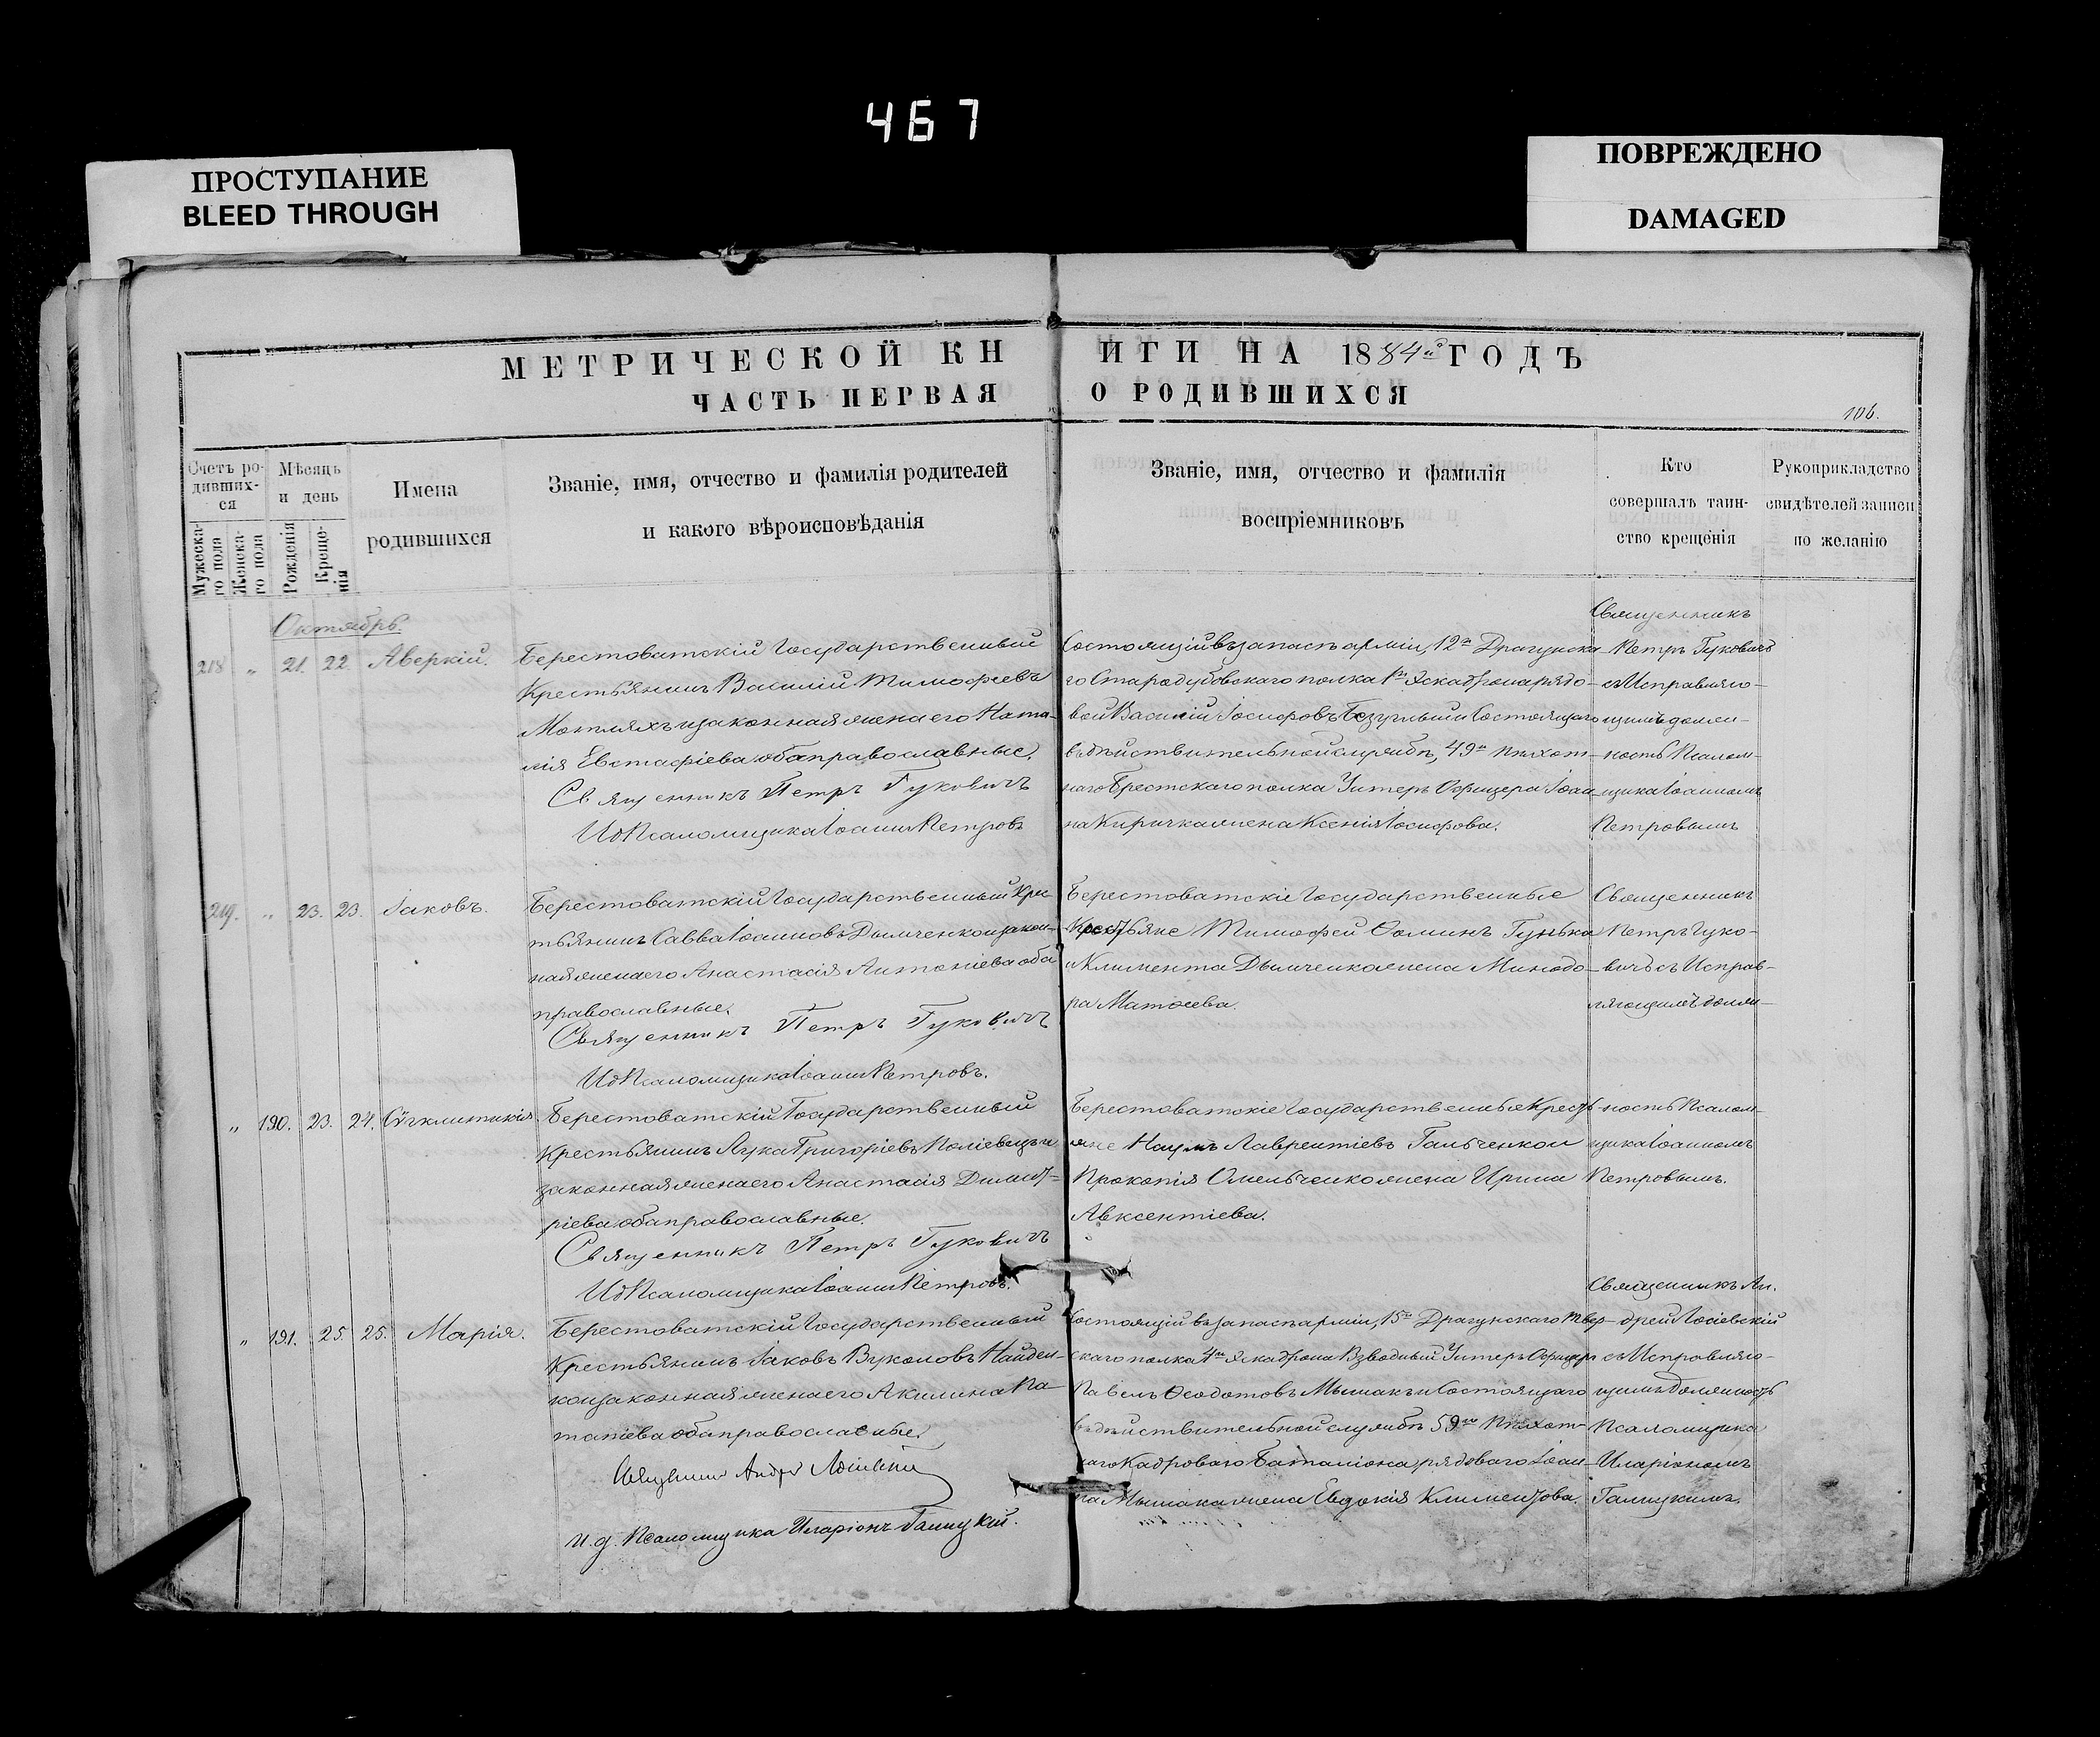 467
ПРОСТУПАНИЕ
BLEED THROUGH
ПОВРЕЖДЕНО
DAMAGED
МЕТРИЧЕСКОЙ КНИГИ НА 1884й ГОДЪ
ЧАСТЬ ПЕРВАЯ О РОДИВШИХСЯ
106.
Счетъ ро-
дивших-
ся
Мужеска-
го пола
Женска-
го пола
Мѣсяцъ
и день
Рожденія
Креще-
нія
Имена
родившихся
Званіе, имя, отчество и фамилія родителей
и какого вѣроисповѣданія
Званіе, имя, отчество и фамилія
воспріемниковъ
Кто
совершалъ таин-
ство крещенія
Рукоприкладство
свидѣтелей записи
по желанію
Октябрь.
218 „ 21. 22. Аверкій.
Берестоватскій Государственный
Крестьянинъ Василій Тимофеевъ
и законная жена его Ната-
лія Евстафіева оба православные.
Священникъ Петръ Гуковичъ
Ид Псаломщика Іоаннъ Петровъ
Состоящій въ запасѣ арміи, 12го Драгунска-
го Стародубовскаго полка 1го Эскадрона рядо-
вой Василій Іосифовъ Безуглый и Состоящаго
въ дѣйствительной службѣ, 49го Пѣхот-
наго Брестскаго полка Унтеръ Офицера Іоан-
на Киричка жена Ксенія Іосифова.
Священникъ
Петръ Гуковичъ
съ Исправляю-
щимъ долж-
ность Псалом-
щика Іоанномъ
Петровымъ
219. „ 23. 23. Іаковъ.
Берестоватскій Государственный Крес-
тьянинъ Савва Іоанновъ Дымченко и закон-
ная жена его Анастасія Антоніева оба
православные.
Священникъ Петръ Гуковичъ
Ид Псаломщика Іоаннъ Петровъ.
Берестоватскіе Государственные
Крестьяне Тимофей Ѳоминъ Гунька
и Климента Дымченка жена Минодо-
ра Матѳеева.
Священникъ
Петръ Гуко-
вичъ съ Исправ-
ляющимъ долж-
„ 190. 23. 24. Сѵгклитикія.
Берестоватскій Государственный
Крестьянинъ Лука Григоріевъ и
законная жена его Анастасія Димит-
ріева оба православные.
Священникъ Петръ Гуковичъ
Ид Псаломщика Іоаннъ Петровъ.
Берестоватскіе Государственные Кресть-
яне Наумъ Лаврентіевъ Гальченко и
Прокопія Омельченко жена Ирина
Авксентіева.
ность Псалом-
щика Іоанномъ
Петровымъ.
„ 191. 25. 25. Марія.
Берестоватскій Государственный
Крестьянинъ Іаковъ Вуколовъ Найден-
ко и законная жена его Акилина По-
тапіева оба православные.
Священникъ Андрей Лосіевскій
И. д. Псаломщика Иларіонъ Галицкій.
Состоящій въ запасѣ арміи, 15го Драгунскаго Твер-
скаго полка 4го Эскадрона Взводный Унтеръ Офицеръ
Павелъ Ѳеодотовъ Мышакъ и Состоящаго
въ дѣйствительной службѣ 59го Пѣхот-
наго Кадроваго Баталіона рядоваго Іоан-
на Мышака жена Евдокія Климентова.
Священникъ Ан-
дрей Лосіевскій
съ Исправляю-
щимъ должность
Псаломщика
Иларіономъ
Галицкимъ.